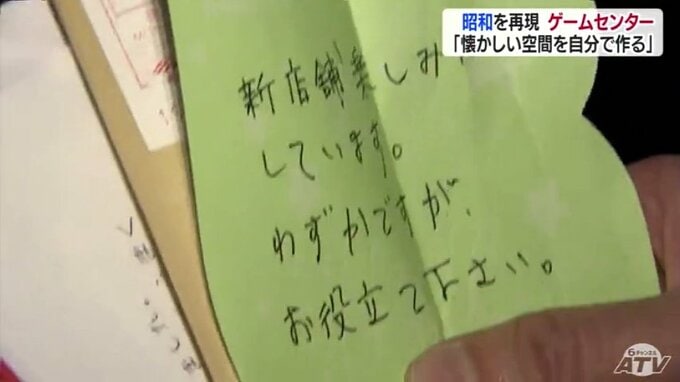 昭和を再現 ゲームセンター
「懐かしい空間を自分で作る」
新店舗楽しみに
しています。
わずかですが、
お役立て下さい。
6チャンネル
ATV